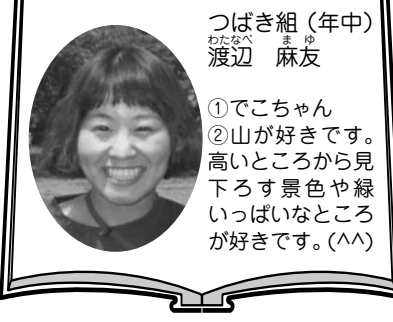 つばき組（年中）
わたなべ　まゆ
渡辺　麻友
①でこちゃん
②山が好きです。
高いところから見
下ろす景色や緑
いっぱいなところ
が好きです。(^^)